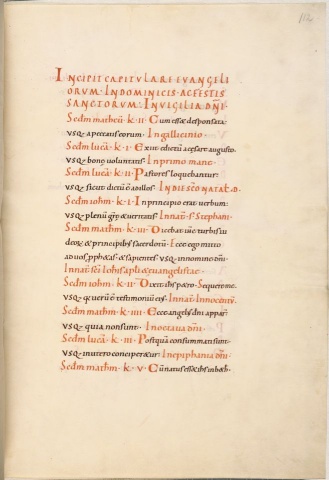 112
INCIPIT CAPITULARE EUANGELI
ORUM. IN DOMINICIS. AC FESTIS
SANCTORUM. IN UIGILIA DNI.
Scdm matheu. k. II. Cum esset desponsata.
usq; a peccatis eorum. In gallicinio.
Scdm luca. k. I. Exiit edictu a cesare augusto.
usq; bone uoluntatis. In primo mane.
Scdm luca. k. II. Pastores loquebantur.
usq; sicut dictu e ad illos. IN DIE SCO NATAL. D.
Scdm iohm. k. I. In principio erat uerbum.
usq; plenu gre & ueritatis. In nat. s. Stephani.
Scdm mathm. k. III. Dicebat ihc turbis iu
deoru & principib; sacerdotu. Ecce ego mitto
ad uos, pph&as. & sapientes. usq; in nomine dni.
In nat sci Iohis apli & euangelistae.
Scdm iohm. k. II. Dixit ihs p&ro. Sequere me.
usq; & ueru e testimoniu eius. In nat. Innocentu.
Scdm mathm. k. IIII. Ecce angels dni apparuit
usq; quia non sunt. In octaua dni.
Scdm luca. k. III. Postqua consummati sunt.
usq; in utero conciperetur. In epiphania dni.
Scdm mathm. k. V. Cu natus ess& ihs in beth.